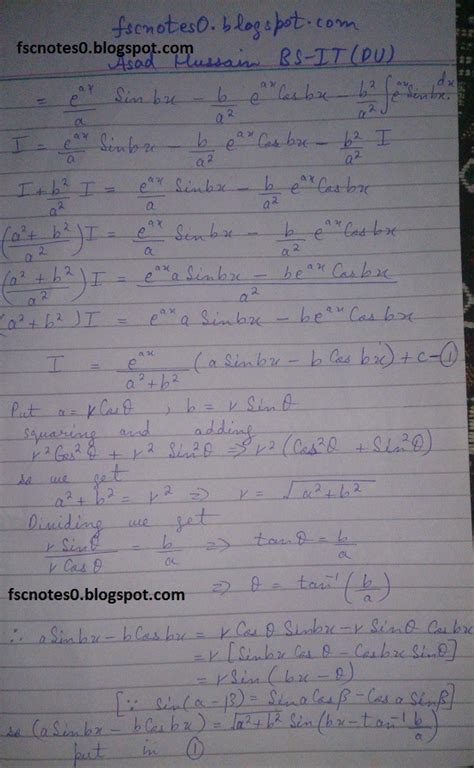 fscnotes0.blogspot.com
fscnotes0.blogspot.com
Asad Hussain BS-IT (PU)
= e^{ax}/a Sinbx - b/a² e^{ax}Cosbx - b²/a² ∫e^{ax}Sinbx dx
I = e^{ax}/a Sinbx - b/a² e^{ax}Cosbx - b²/a² I
I + b²/a² I = e^{ax}/a Sinbx - b/a² e^{ax}Cosbx
(a²+b²/a²)I = e^{ax}/a Sinbx - b/a² e^{ax}Cosbx
(a²+b²/a²)I = e^{ax}a Sinbx - be^{ax}Cosbx/a²
(a²+b²)I = e^{ax}a Sinbx - be^{ax}Cosbx
I = e^{ax}/a²+b² (a Sinbx - b Cosbx) + c - ①
Put a = r Cosθ , b = r Sinθ
squaring and adding
r²Cos²θ + r² Sin²θ ⇒ r²(Cos²θ + Sin²θ)
so we get
a²+b² = r² ⇒ r = √a²+b²
Dividing we get
r Sinθ/r Cosθ = b/a ⇒ tanθ = b/a
fscnotes0.blogspot.com
⇒ θ = tan⁻¹(b/a)
∴ aSinbx - bCosbx = r Cosθ Sinbx - r Sinθ Cosbx
= r[Sinbx Cosθ - Cosbx Sinθ]
= r Sin(bx - θ)
[∵ Sin(α-β) = SinαCosβ - Cosα Sinβ]
so (aSinbx - bCosbx) = √a²+b² Sin(bx - tan⁻¹ b/a)
put in ①